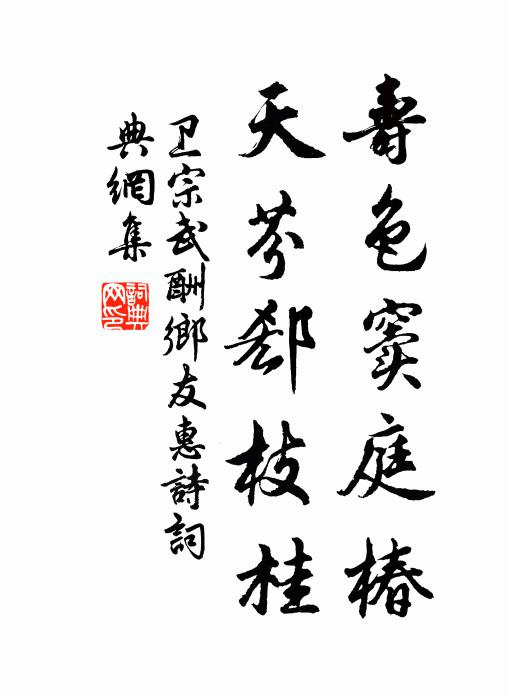 壽色窦庭椿
天芬郄枝桂
卫宗武酬鄉友惠詩詞
典網集
詞典網印